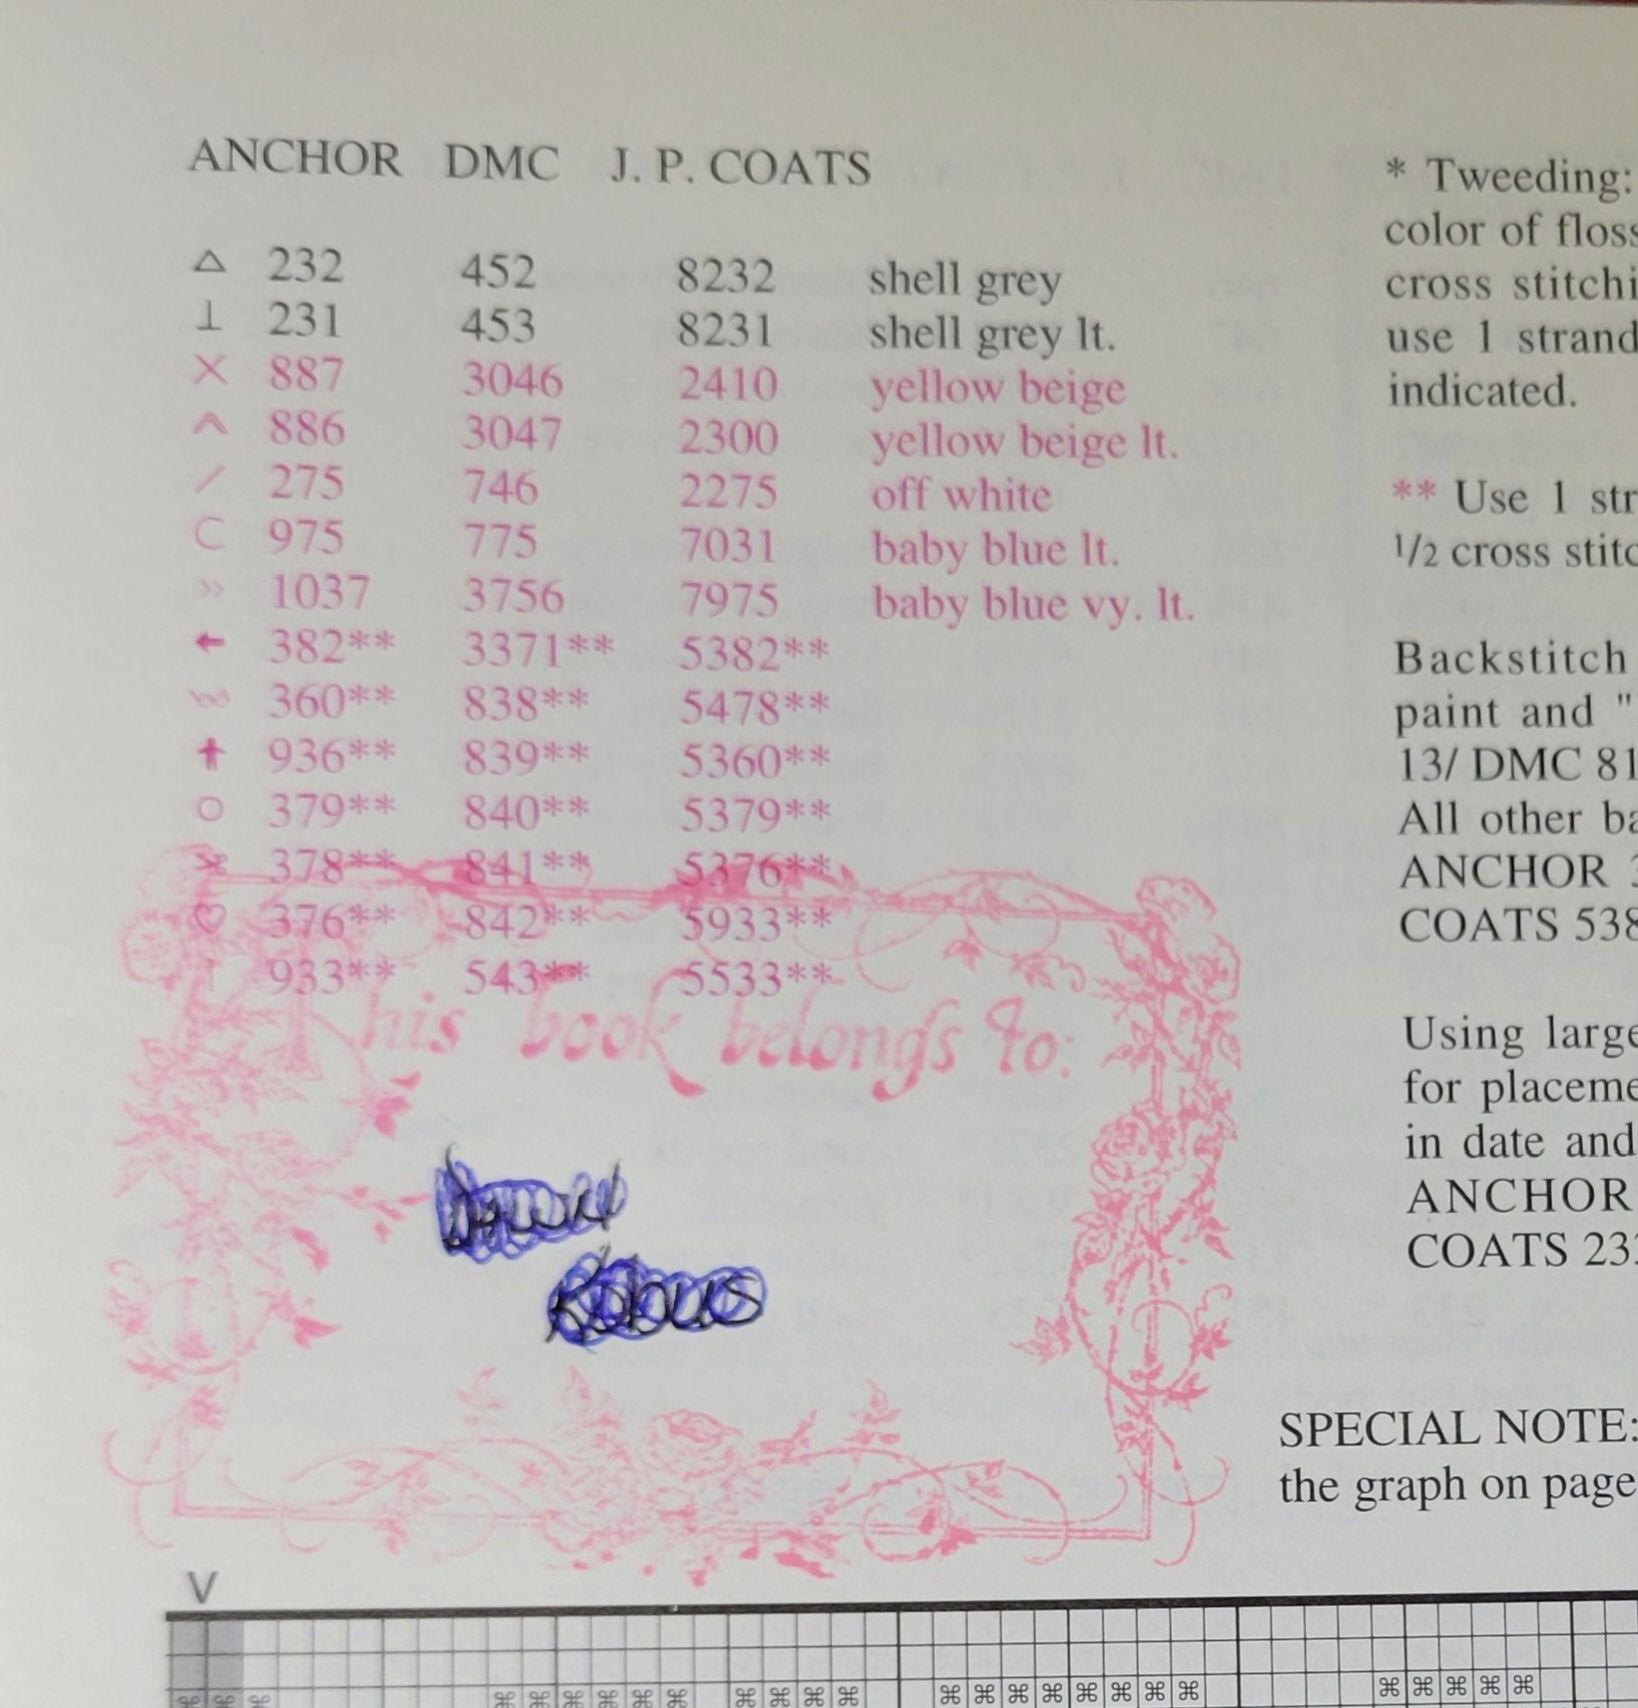 ANCHOR DMC J. P. COATS
△ 232 452 8232 shell grey
⊥ 231 453 8231 shell grey lt.
× 887 3046 2410 yellow beige
^ 886 3047 2300 yellow beige lt.
/ 275 746 2275 off white
C 975 775 7031 baby blue lt.
» 1037 3756 7975 baby blue vy. lt.
← 382** 3371** 5382**
360** 838** 5478**
936** 839** 5360**
○ 379** 840** 5379**
378** 841** 5376**
♡ 376** 842** 5933**
933** 543** 5533**
This book belongs to:
V
* Tweeding:
color of floss
cross stitchi
use 1 strand
indicated.
** Use 1 str
1/2 cross stitc
Backstitch
paint and "
13/ DMC 81
All other ba
ANCHOR 3
COATS 538
Using large
for placeme
in date and
ANCHOR
COATS 233
SPECIAL NOTE:
the graph on page